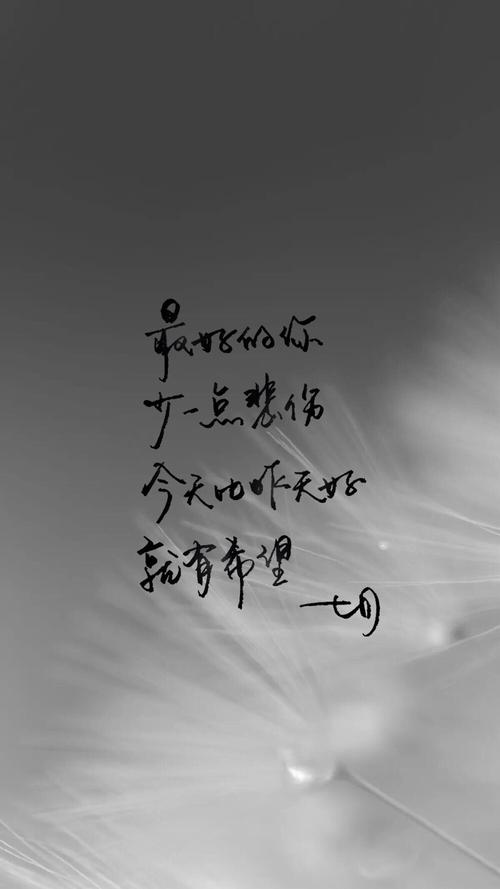 最好的你
少一点悲伤
今天比昨天好
就有希望
七月